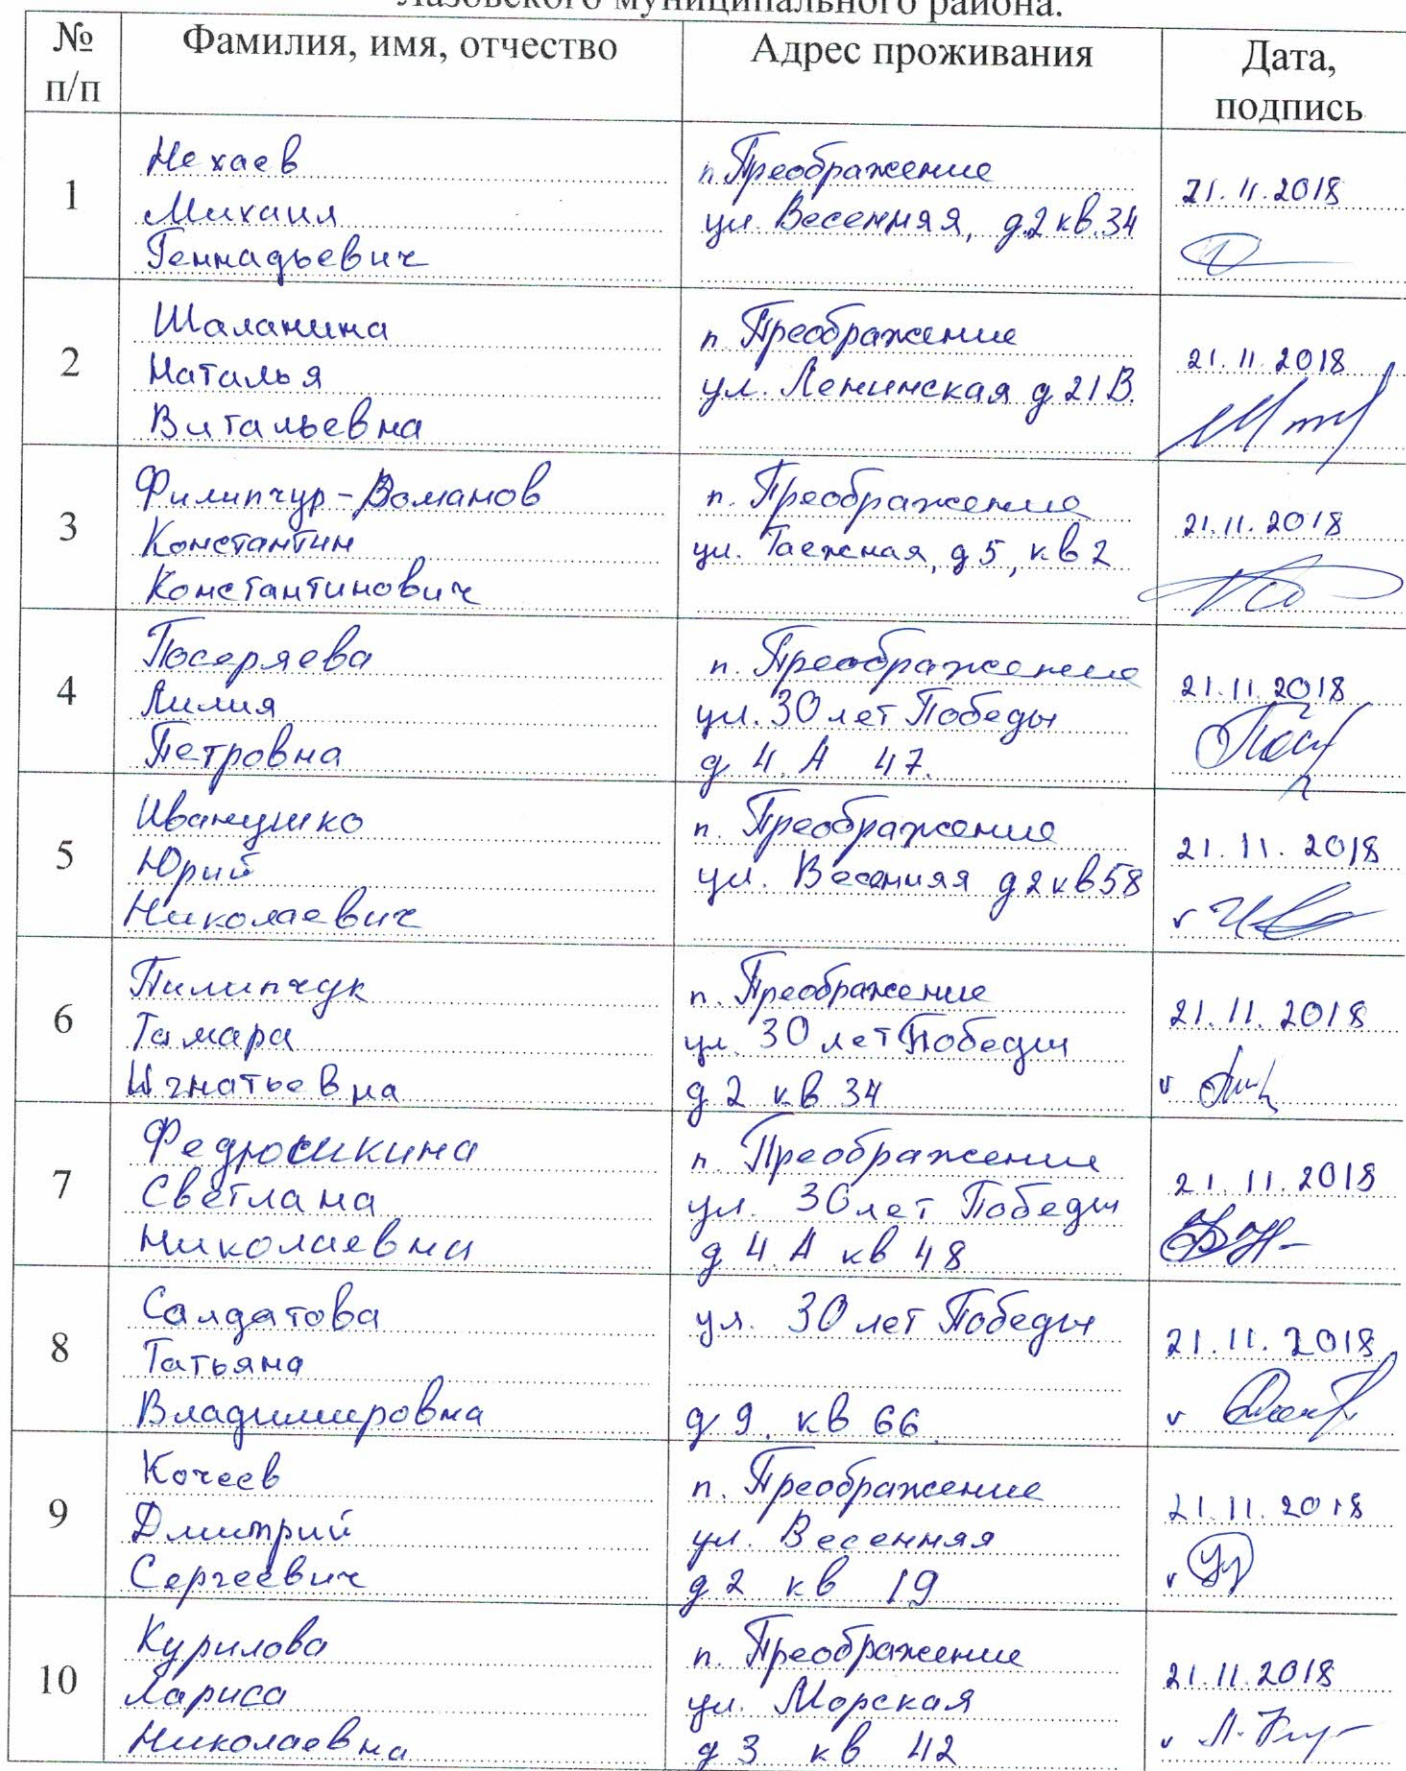 Лазовского муниципального района.
№ п/п
Фамилия, имя, отчество
Адрес проживания
Дата, подпись
1
Нехаев
Михаил
Геннадьевич
п. Преображение
ул. Весенняя, д.2 кв.34
21.11.2018
2
Шаланина
Наталья
Витальевна
п. Преображение
ул. Ленинская д 21В.
21.11.2018
3
Константин
Константинович
п. Преображение
ул. Таежная, д 5, кв 2
21.11.2018
4
Посеряева
Лилия
Петровна
п. Преображение
ул. 30 лет Победы
д 4 А 47.
21.11.2018
5
Иванушко
Юрий
Николаевич
п. Преображение
ул. Весенняя д 2 кв 58
21.11.2018
6
Пилипчук
Тамара
Игнатьевна
п. Преображение
ул. 30 лет Победы
д 2 кв 34
21.11.2018
7
Федюшкина
Светлана
Николаевна
п. Преображение
ул. 30 лет Победы
д 4 А кв 48
21.11.2018
8
Салдатова
Татьяна
Владимировна
ул. 30 лет Победы
д 9. кв 66
21.11.2018
9
Кочеев
Дмитрий
Сергеевич
п. Преображение
ул. Весенняя
д 2 кв 19
21.11.2018
10
Курилова
Лариса
Николаевна
п. Преображение
ул. Морская
д 3 кв 42
21.11.2018